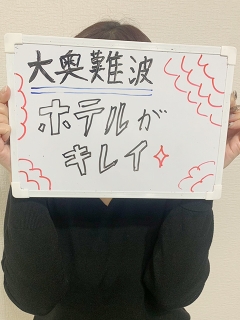 大奥難波
ホテルが
キレイ